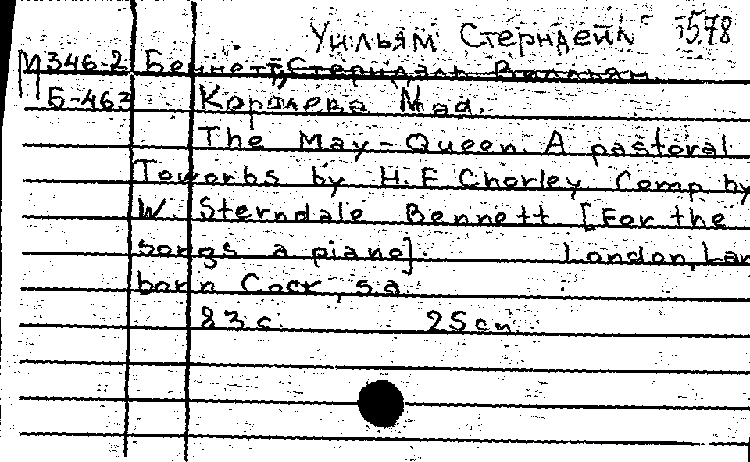 Уильям Стерндейл 1578
М346-2 Беннет, Стерндаль Вильям
Б-463 Королева Мая.
The May-Queen. A pastoral
To words by H. F Chorley Comp by
W. Sterndale Bennett [For the
songs a piano]. London, Lam
born Cock, s.a.
83 с. 25 cm.